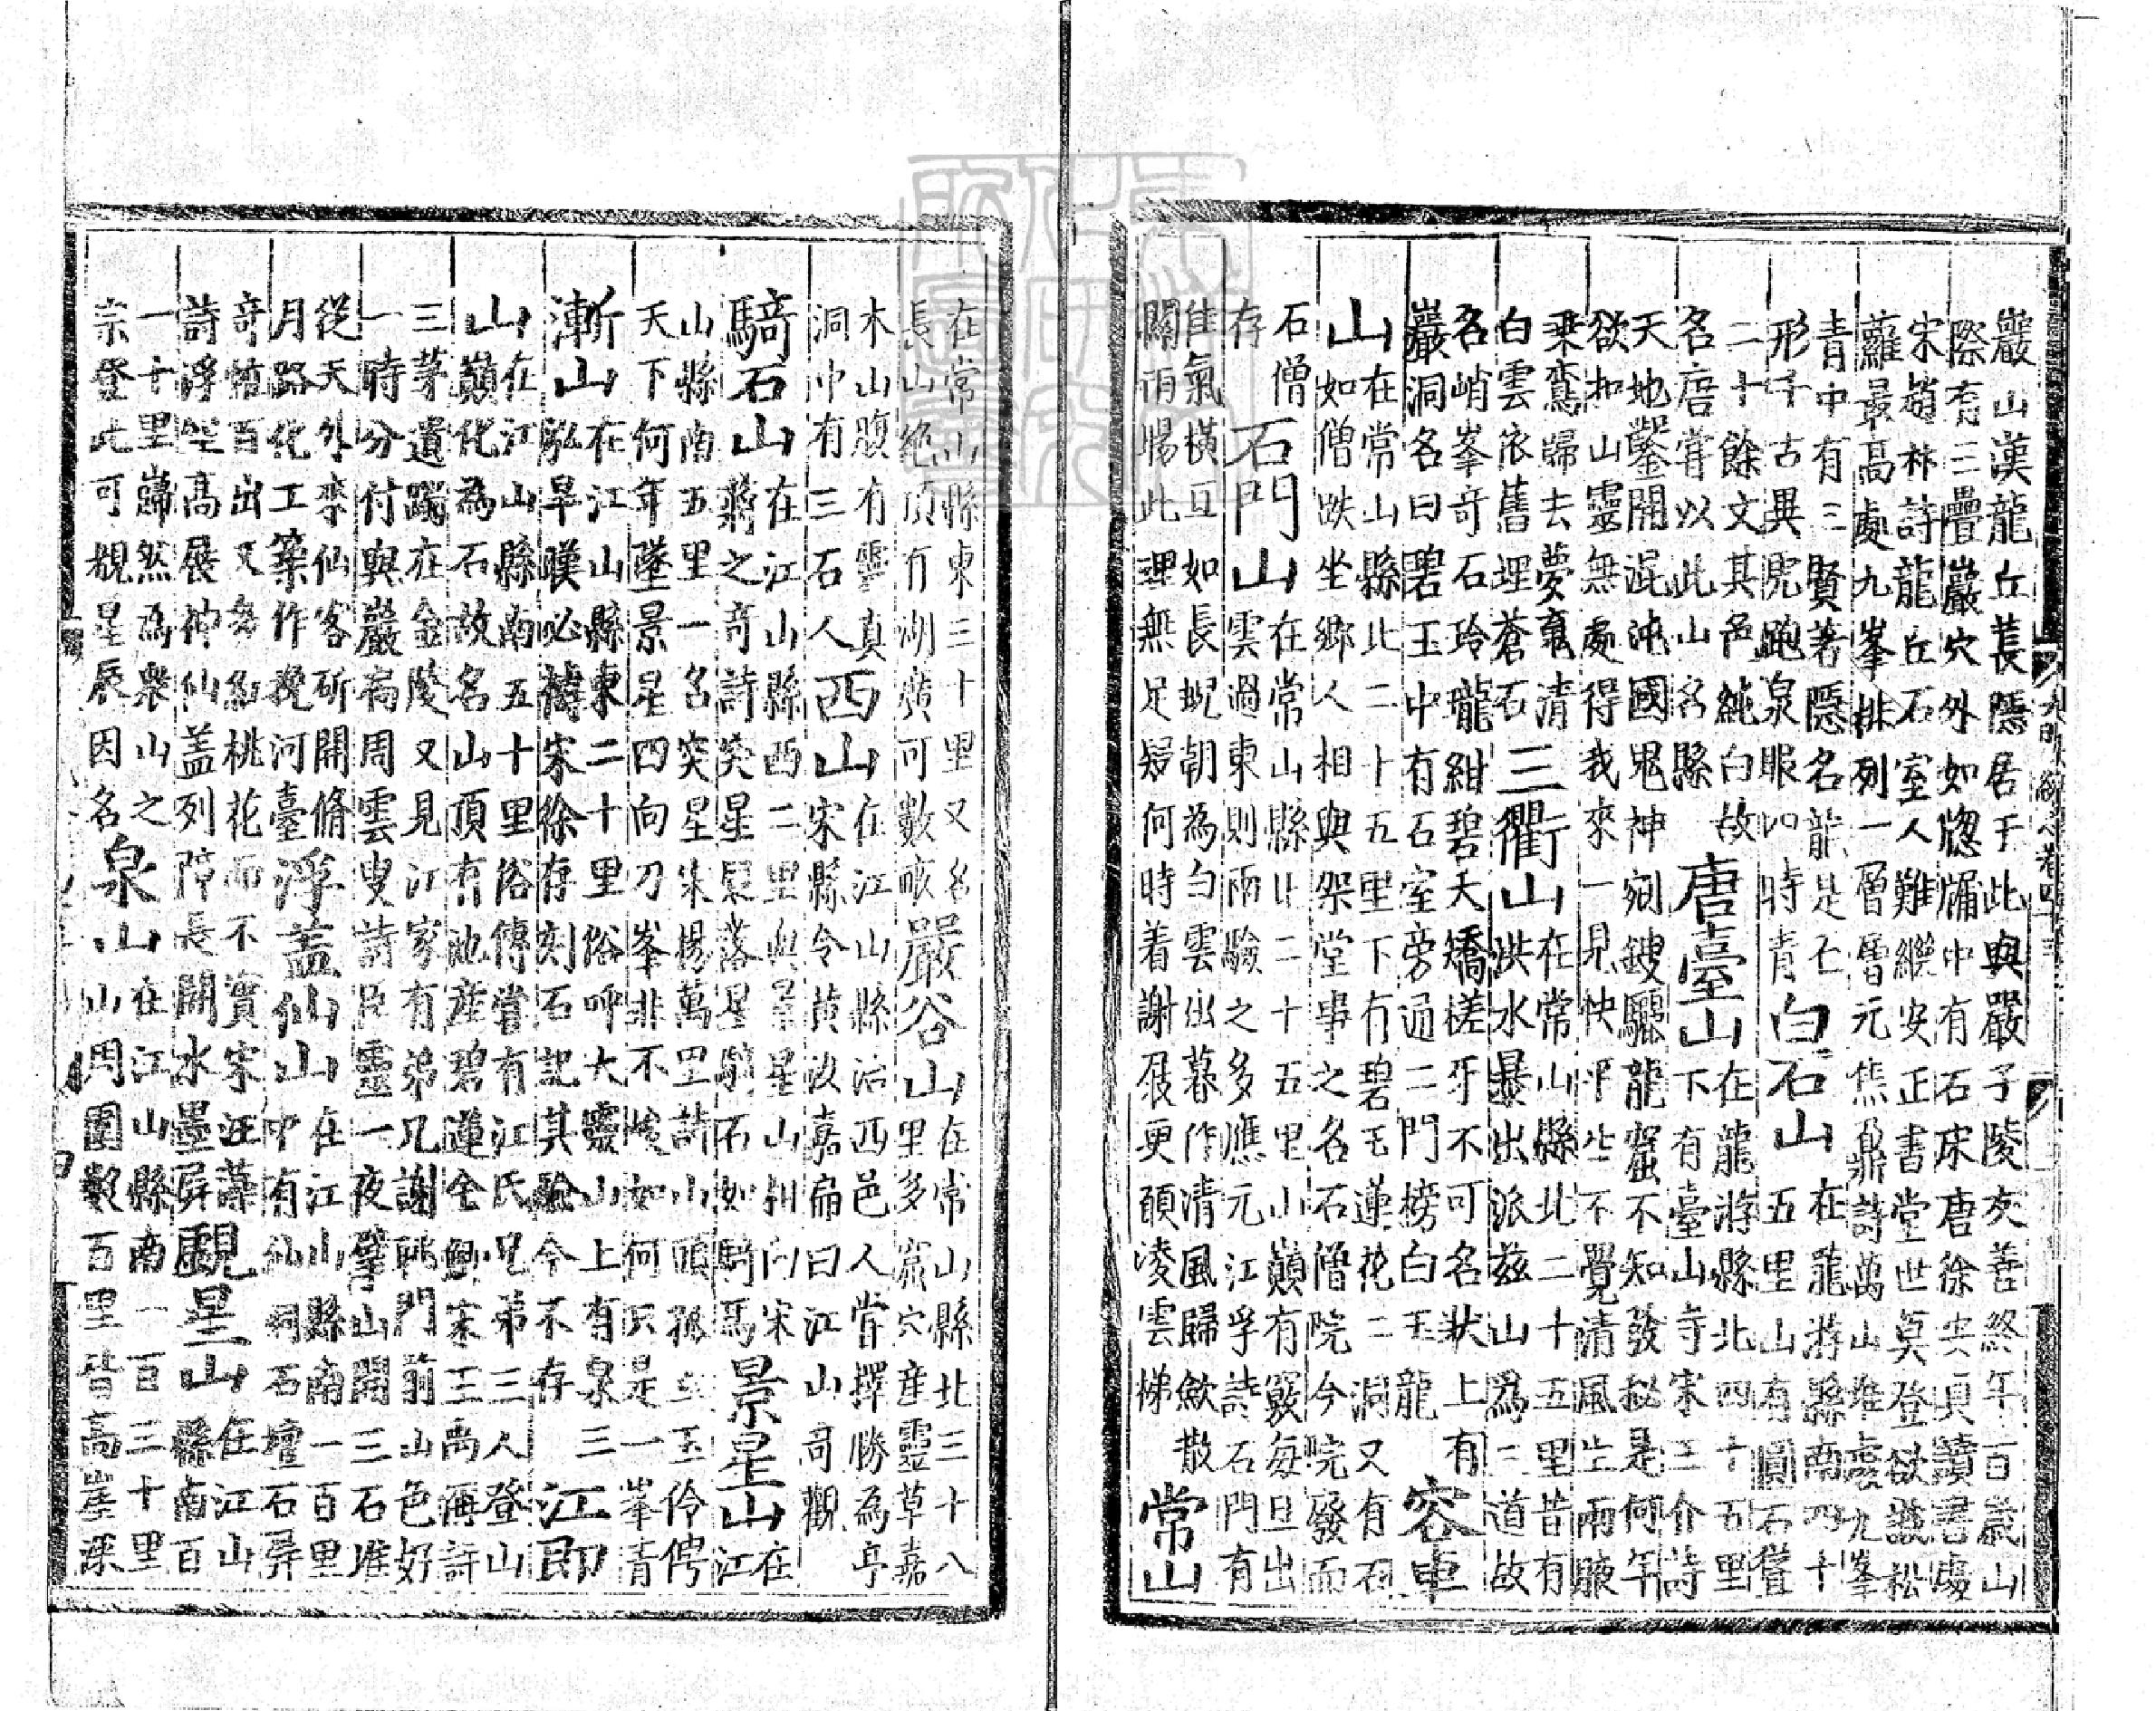 巖山漢龍丘萇隱居于此與嚴子陵友善終年百歲山
際有三疊巖穴外如牕牖中有石床唐徐安貞讀書處
宋趙林詩龍丘石室人難繼安正書堂世莫登欲識松
蘿最高處九峯排列一層層元焦鼎詩萬山堆裏九峯
青中有三賢著隱名龍是
形千古異虎跑泉眼四時青
白石山
在龍游縣南四十
五里山有圓石嘗
二十餘文其色純白故
名唐嘗以此山名縣
唐臺山
在龍游縣北四十五里
下有臺山寺宋王介詩
天地鑿開混沌國鬼神剜鍥驪龍窟不知發秘是何年
欲扣山靈無處得我來一見快平生不覺清風生兩腋
乗鸞歸去夢竟清
白雲依舊埋蒼石
三衢山
在常山縣北二十五里昔有
洪水暴出派兹山爲三道故
名峭峯奇石玲瓏紺碧天矯槎牙不可名狀上有
巖洞名曰碧玉中有石室旁通二門榜白玉龍
容車
山
在常山縣北二十五里下有碧玉蓮花二洞又有石
如僧趺坐鄉人相與架堂事之名石僧院今院廢而
石僧
存
石門山
在常山縣北二十五里山巔有竅每旦出
雲過東則雨驗之多應元江孚詩石門有
佳氣橫亘如長蜺朝為白雲出暮作清風歸歛散
關雨暘此理無足疑何時着謝屐更頤凌雲梯
常山
在常山縣東三十里又名
長山絕頂有湖廣可數畝
嚴谷山
在常山縣北三十八
里多窾穴産靈草嘉
木山腹有靈真
洞冲有三石人
西山
在江山縣治西邑人甞擇勝為亭
宋縣令黃汝嘉扁曰江山奇觀
騎石山
在江山縣西二里與景星山相向宋
蔣之奇詩突星景落星騎石如騎馬
景星山
在
江
山縣南五里一名突星朱楊萬里詩山頭孤立玉伶俜
天下何年墜景星四向刀峯非不峻如何只是一峯青
漸山
在江山縣東二十里俗呼大靈山上有泉三
泓旱暵必禱宋徐存刻石記其驗今不存
江郎
山
在江山縣南五十里俗傳嘗有江氏兄弟三人登山
巔化為石故名山頂有池産碧蓮金鯽宋王禹偁詩
三茅遺躅在金陵又見江家有弟兄謝眺門前山色好
一時分付與巖扃周雲叟詩臣靈一夜擘山開三石堆
從天外李仙客斫開脩
月路化工築作挽河臺
浮盖仙山
在江山縣南一百里
中有仙洞石壇石屏
奇恠百出又多紅桃花而不實宋汪藻
詩浮空高展神仙盖列障長開水墨屏
覩星山
在江山
縣南百
一十里巋然爲衆山之
宗登此可覩星辰因名
泉山
在江山縣南一百三十里
山周圍數百里皆高崖深